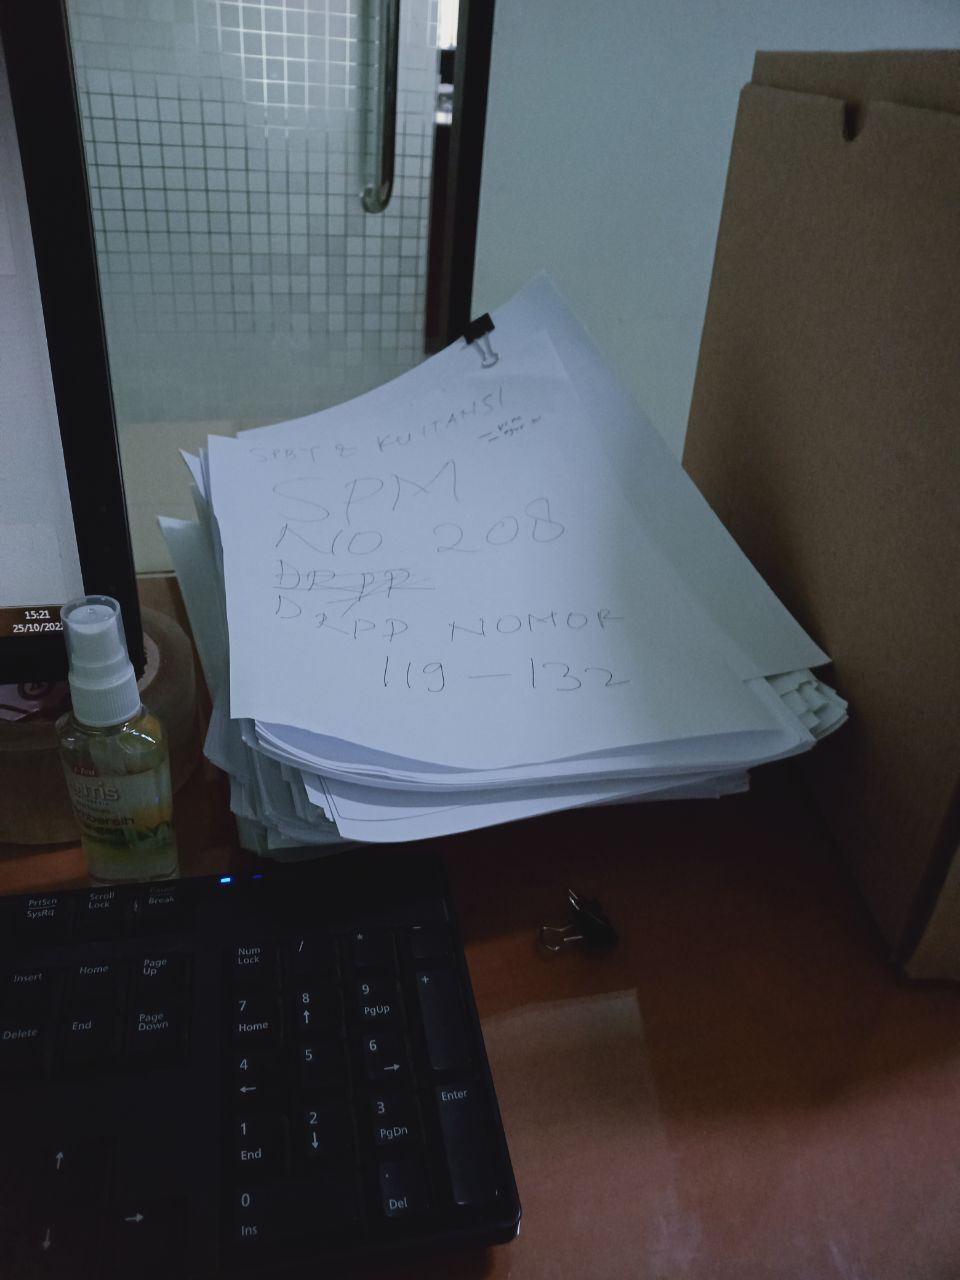 SPBT & KUITANSI
SPM
NO 208
DRPP
DRPP NOMOR
119 - 132
15:21
25/10/202
PrtScn
SysRq
Scroll
Lock
Pause
Break
Insert
Home
Page
Up
Delete
End
Page
Down
Num
Lock
/
*
-
+
7
Home
8
↑
9
PgUp
4
←
5
6
→
1
End
2
↓
3
PgDn
Enter
0
Ins
.
Del
↑
↓
→